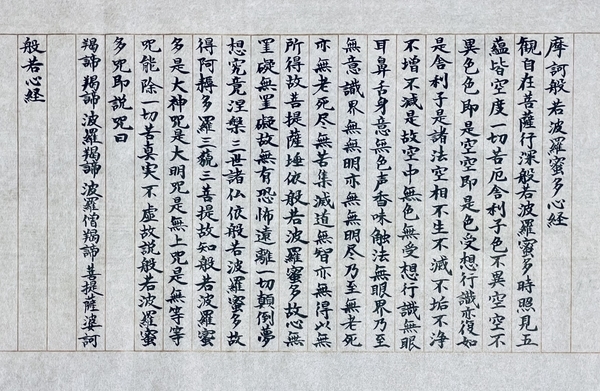 摩訶般若波羅蜜多心経
観自在菩薩行深般若波羅蜜多時照見五
蘊皆空度一切苦厄舎利子色不異空空不
異色色即是空空即是色受想行識亦復如
是舎利子是諸法空相不生不滅不垢不浄
不増不減是故空中無色無受想行識無眼
耳鼻舌身意無色声香味触法無眼界乃至
無意識界無無明亦無無明尽乃至無老死
亦無老死尽無苦集滅道無智亦無得以無
所得故菩提薩埵依般若波羅蜜多故心無
罣礙無罣礙故無有恐怖遠離一切顛倒夢
想究竟涅槃三世諸仏依般若波羅蜜多故
得阿耨多羅三藐三菩提故知般若波羅蜜
多是大神咒是大明咒是無上咒是無等等
咒能除一切苦真実不虚故説般若波羅蜜
多咒即説咒曰
羯諦羯諦波羅羯諦波羅僧羯諦菩提薩婆訶
般若心経